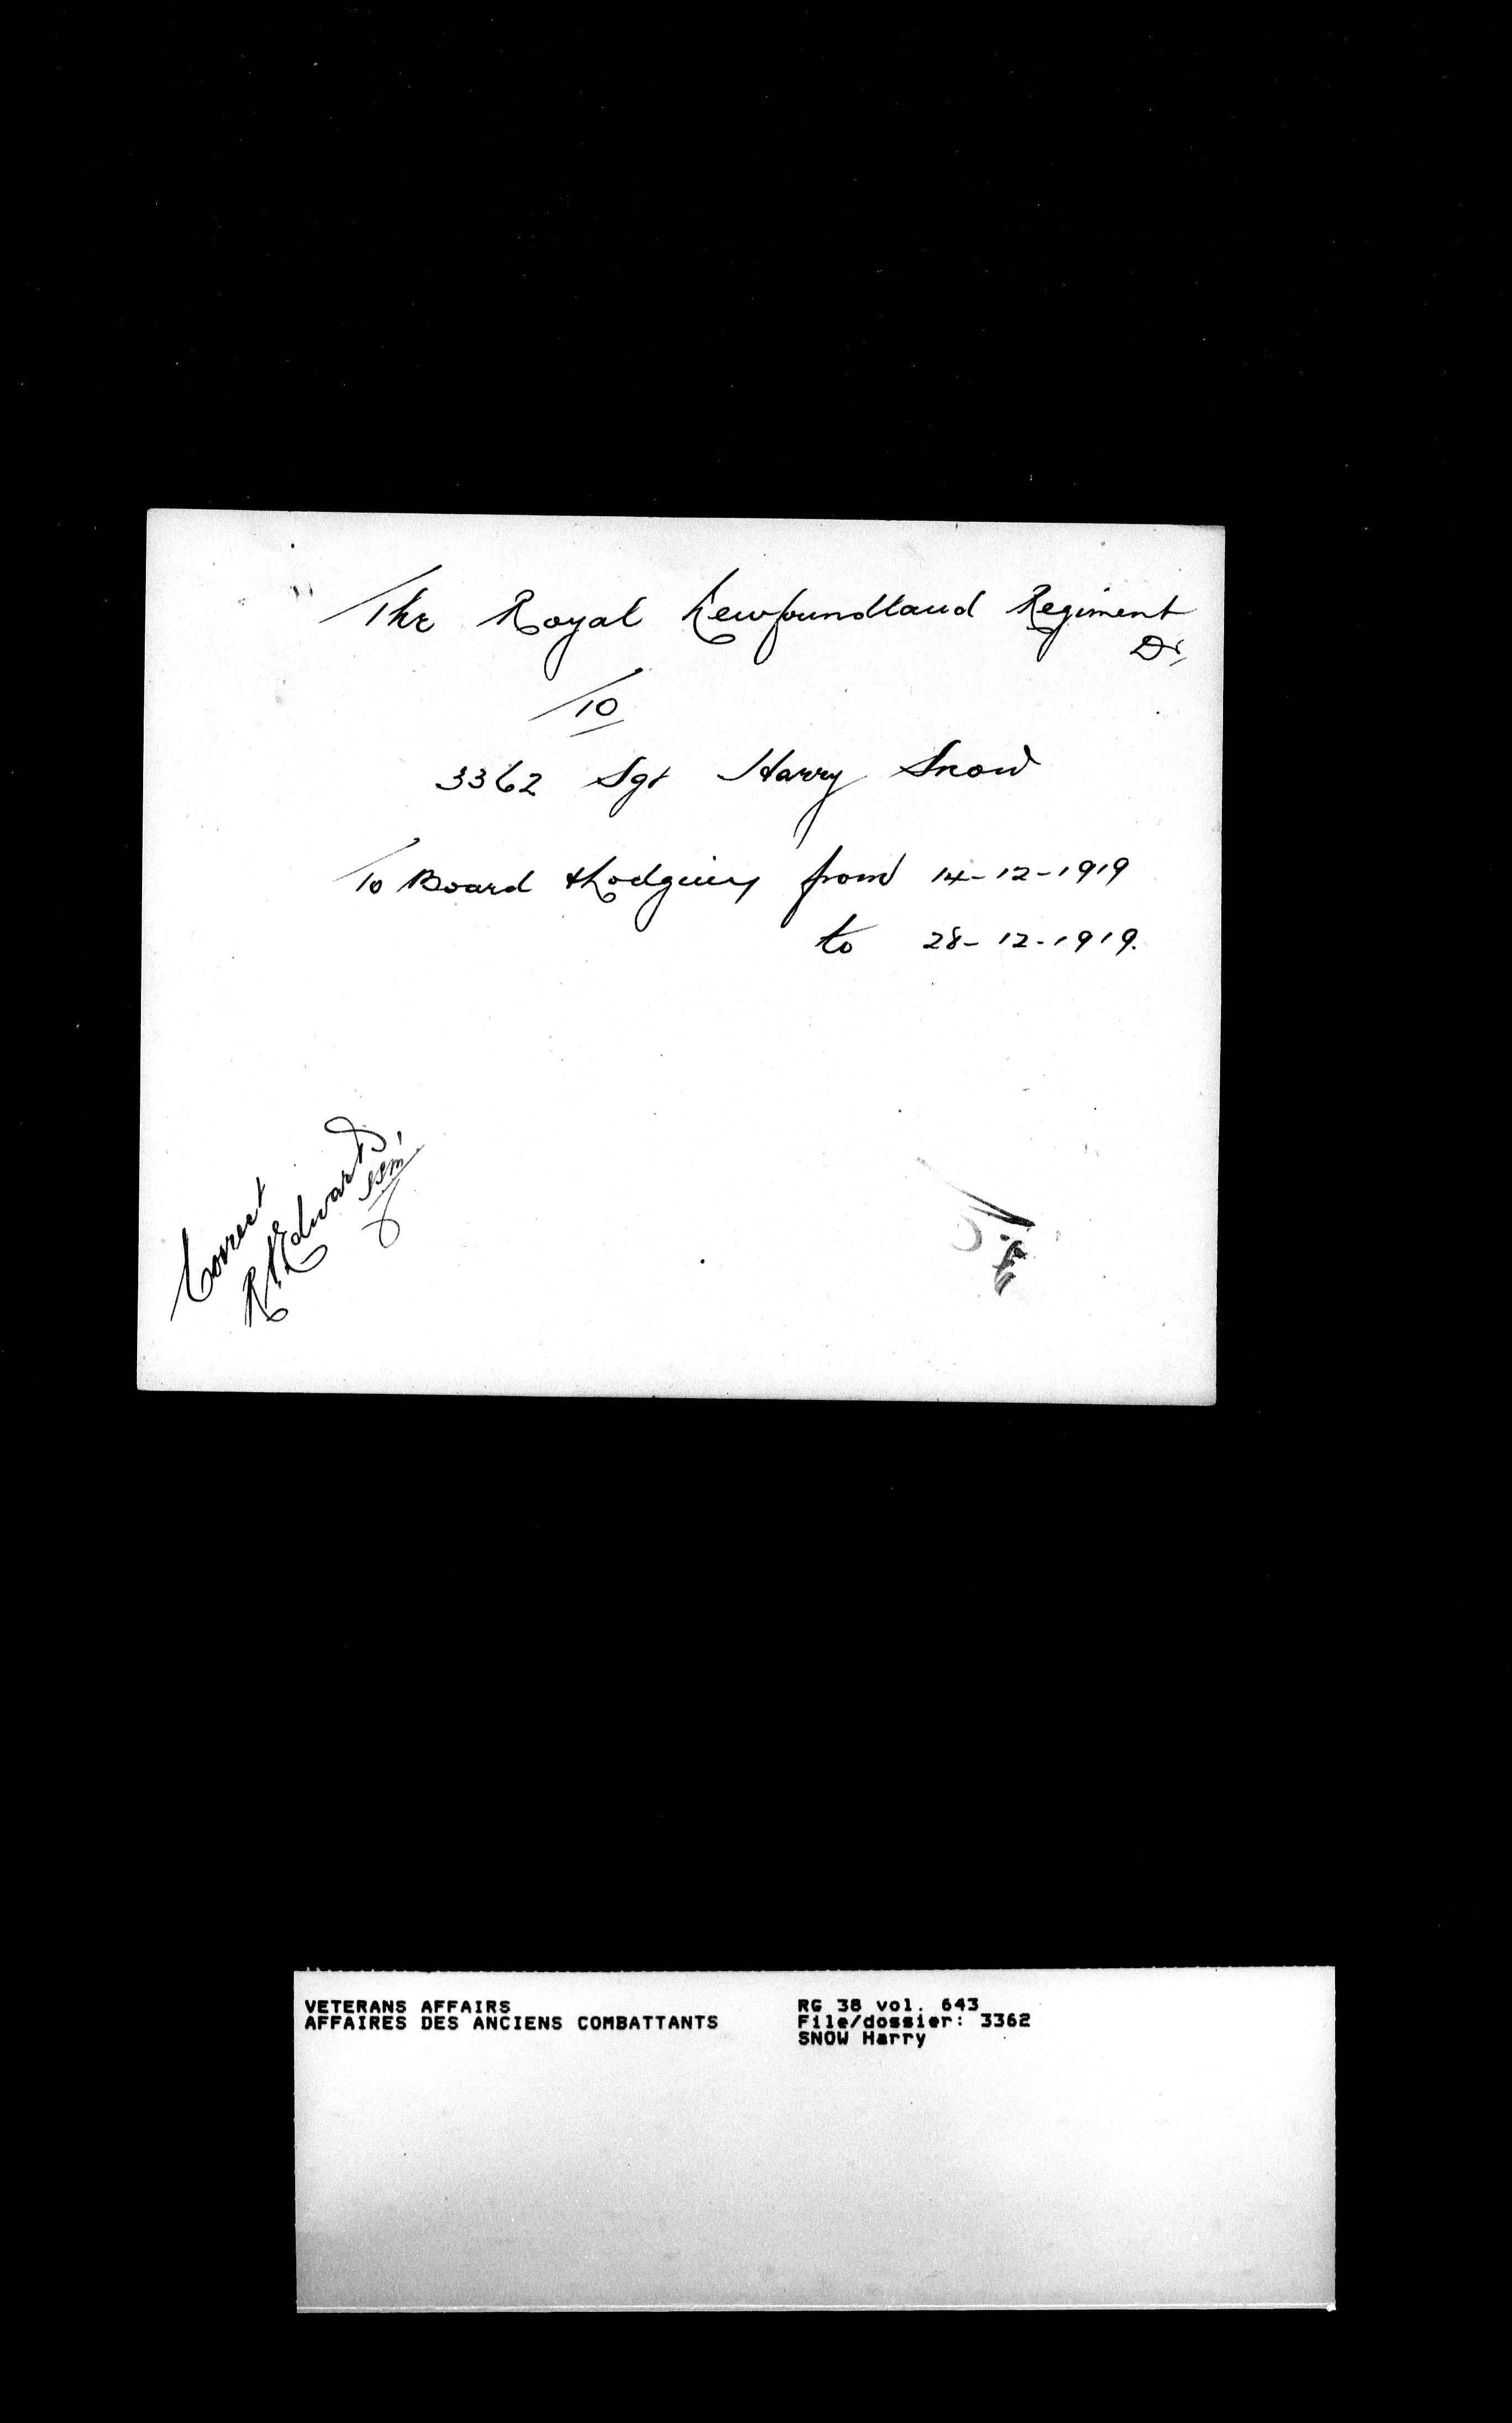 The Royal Newfoundland Regiment
Dr,
To
3362 Sgt Harry Snow
To Board & Lodging from 14-12-1919
to 28-12-1919.
Correct
Edwards
VETERANS AFFAIRS
AFFAIRES DES ANCIENS COMBATTANTS
RG 38 vol. 643
File/dossier: 3362
SNOW Harry